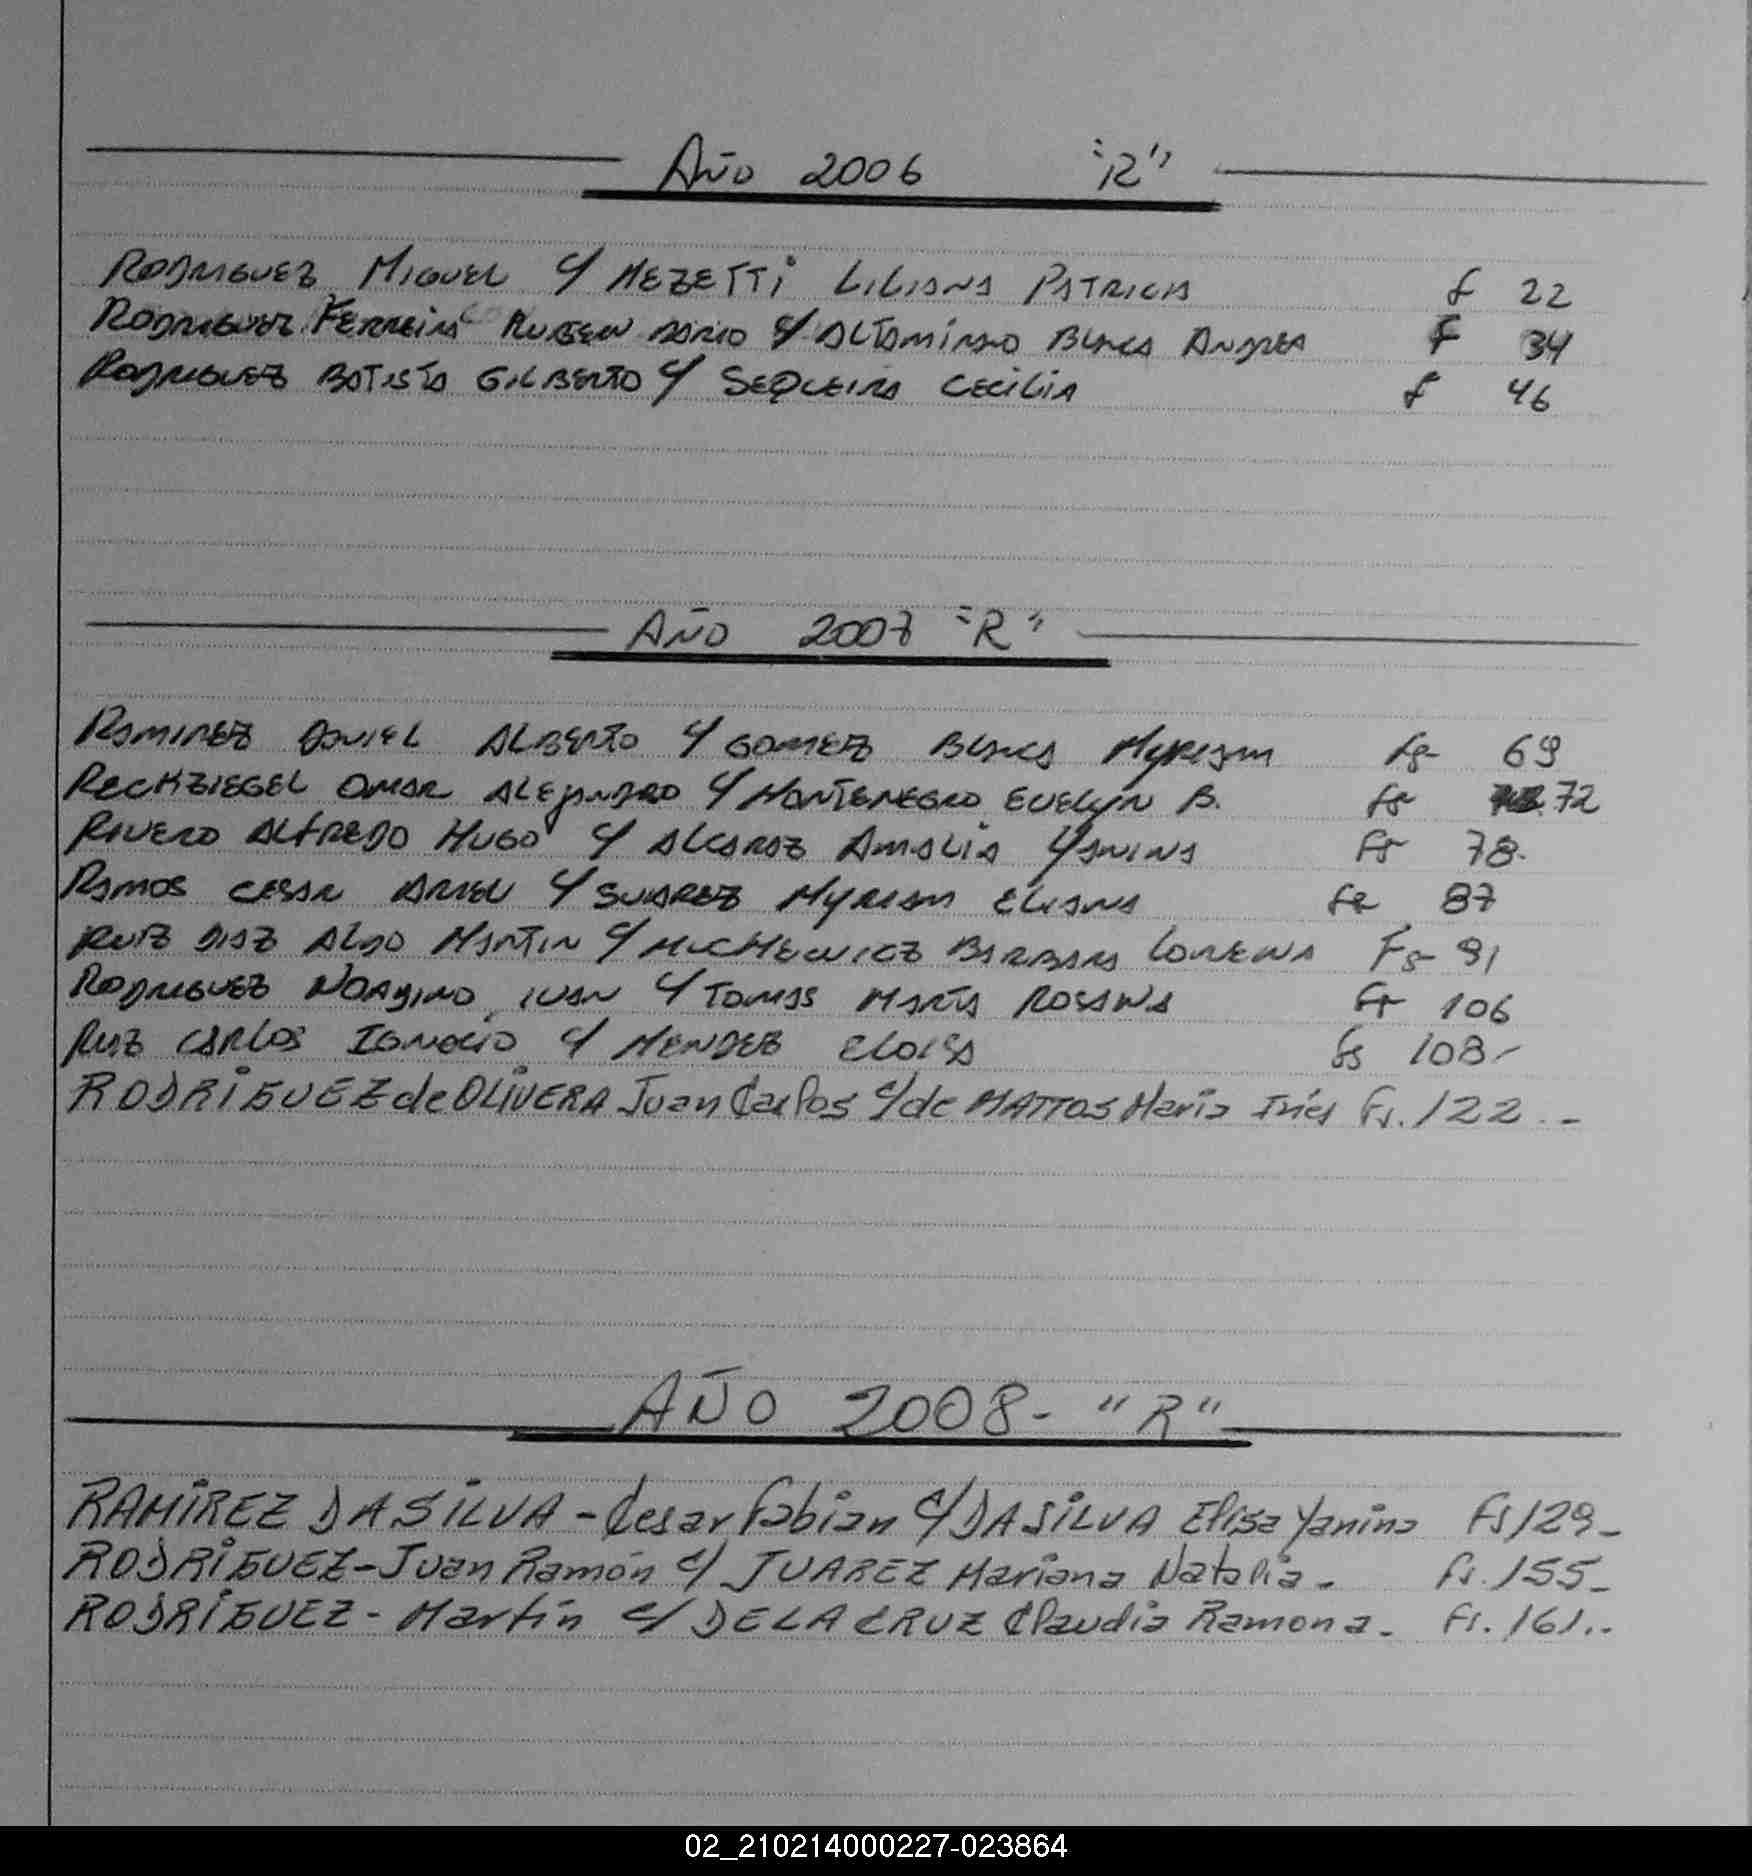 Año 2006 "R"
RODRIGUEZ MIGUEL c/ MEZETTI LILIANA PATRICIA f 22
RODRIGUEZ FERREIRA RUBEN DARIO c/ ALTAMIRANO BLANCA ANDREA f 34
RODRIGUEZ BATISTA GILBERTO c/ SEQUEIRA CECILIA f 46
AÑO 2007 "R"
RAMIREZ DANIEL ALBERTO c/ GOMEZ BLANCA MYRIAM fs 69
RECKZIEGEL OMAR ALEJANDRO c/ MONTENEGRO EVELYN B. fs 72
RIVERO ALFREDO HUGO c/ ALCARAZ AMALIA YANINA Fs 78.
RAMOS CESAR ARIEL c/ SUAREZ MYRIAM ELIANA fs 87
RUIZ DIAZ ALDO MARTIN c/ BARBARA LORENA Fs 91
RODRIGUEZ IVAN c/ TOMAS MARIA ROSANA Fs 106
RUIZ CARLOS IGNACIO c/ MENDEZ ELOISA fs 108-
RODRIGUEZ de OLIVERA Juan Carlos c/ de MATTOS Maria Inés Fs. 122.-
AÑO 2008- "R"
RAMIREZ DASILVA - Cesar Fabian c/ DASILVA Elisa Yanina Fs 129-
RODRIGUEZ - Juan Ramón c/ JUAREZ Mariana Natalia. Fs. 155-
RODRIGUEZ - Martín c/ DE LA CRUZ Claudia Ramona. Fs. 161..
02_210214000227-023864